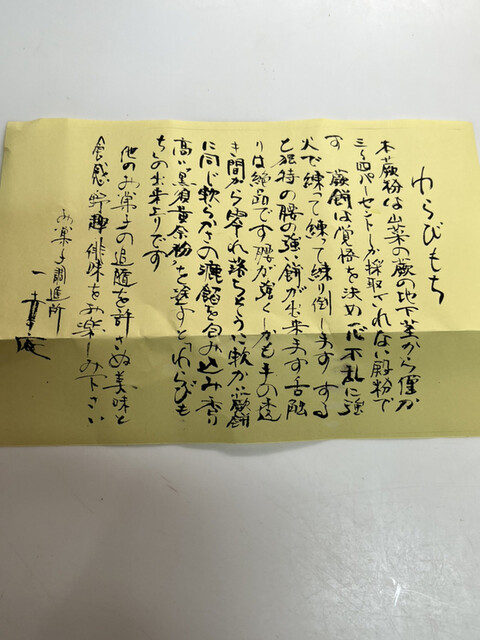 わらびもち
本蕨粉は山菜の蕨の地下茎から僅か
三〜四パーセントしか採取されない澱粉で
す 蕨餅は覚悟を決め一心不乱に強
火で練って練って練り倒します する
と独特の腰の強い餅が出来ます 舌触
りは絶品です 腰が強くしかも手の透
き間から零れ落ちそうに軟かい蕨餅
に同じ軟らかさの漉餡を包み込み香り
高い黒須黄奈粉を塗すと「わらびも
ち」の出来上りです
他のお菓子の追随を許さぬ美味と
食感 野趣 俳味をお楽しみ下さい
お菓子調進所
一幸庵